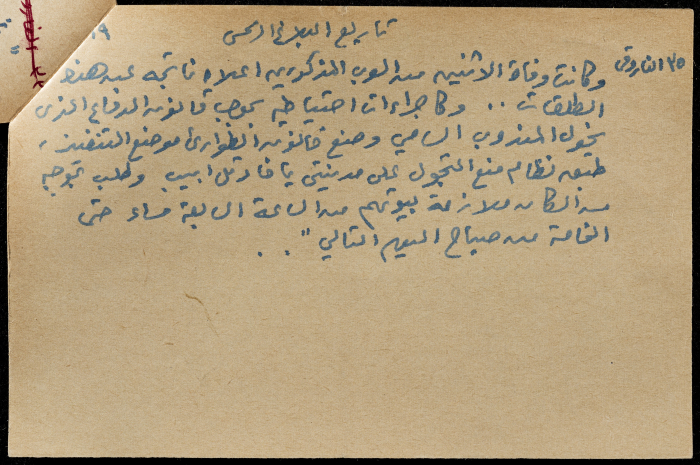 تاريخ البلاغ الرسمي ١٩
٣٥ الفاروقي
وكانت وفاة الاثنين من العرب المذكورين اعلاه ناتجة عن هذه
الطلقات .. وكاجراءات احتياطيه بموجب قانون الدفاع الذي
يخول المندوب السامي وضع قانون الطوارئ موضع التنفيذ ،
طبق نظام منع التجول على مدينتي يافا وتل ابيب وطلب بموجبه
من السكان ملازمة بيوتهم من الساعة السابعة مساء حتى
الخامسة من صباح اليوم التالي " . .